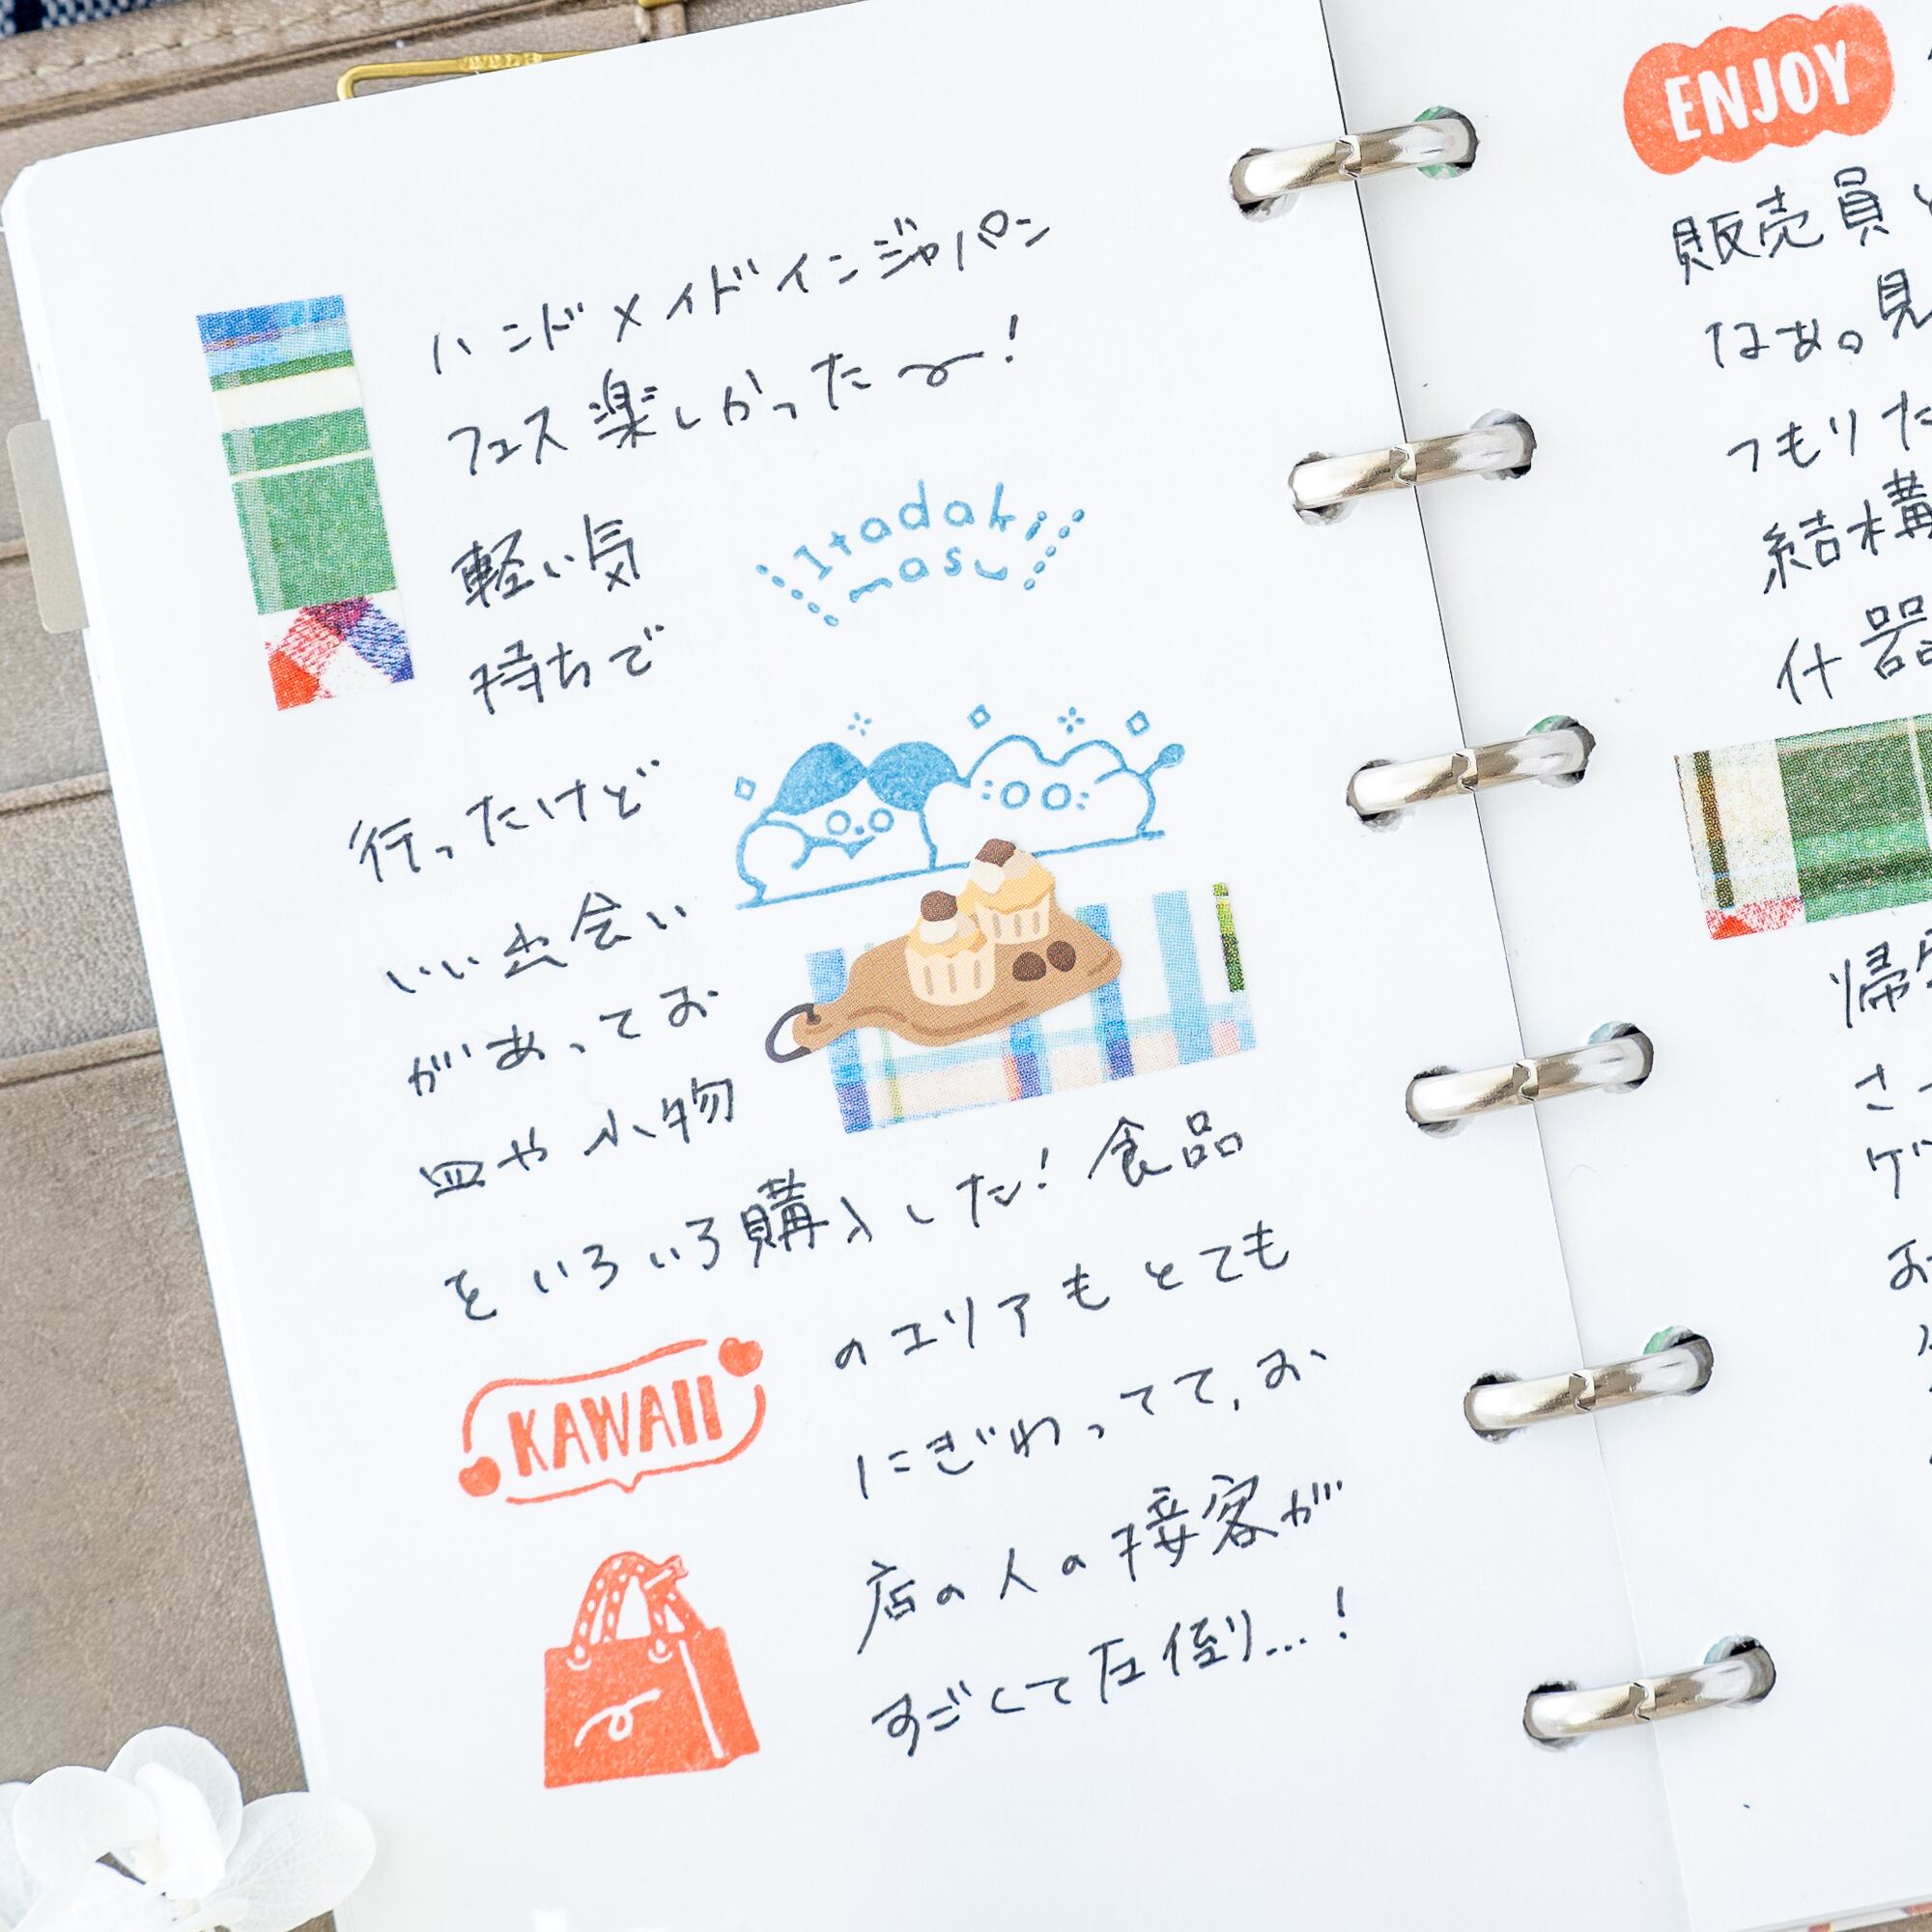 ハンドメイドインジャパン
フェス楽しかったー!
Itadaki
masu
軽い気
持ちで
行ったけど
いい出会い
があってお
皿や小物
をいろいろ購入した!食品
KAWAII
のエリアもとても
にぎわってて、お
店の人の接客が
すごくて圧倒…!
ENJOY
販売員
なぁ。見
つもりた
結構
什器
帰宅
さっ
ゲ
お